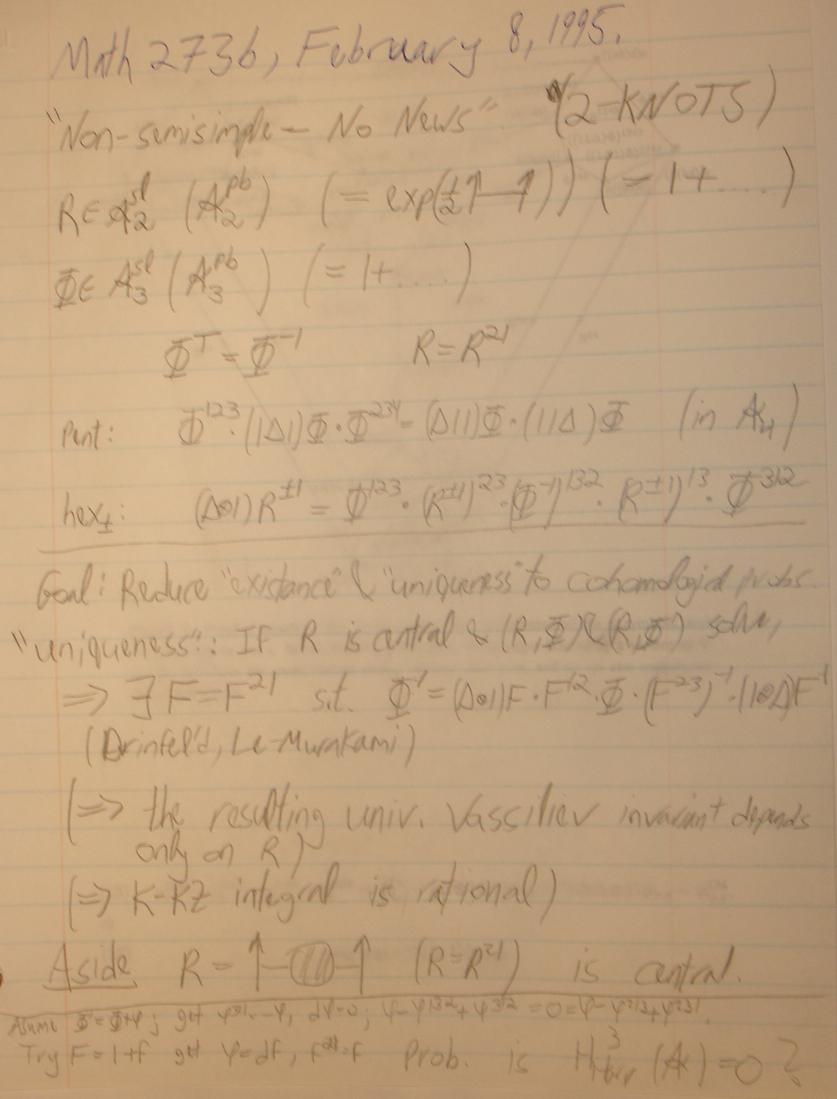 Math 273b, February 8, 1995.
"Non-semisimple — No News" (2-KNOTS)
R ∈ A₂^{sl} (A₂^{pb}) (= exp(½↑—↑)) (= 1+....)
Φ ∈ A₃^{sl} (A₃^{pb}) (= 1+....)
Φ^T = Φ^{-1} R = R^{21}
Pent: Φ^{123}·(1Δ1)Φ·Φ^{234} = (Δ11)Φ·(11Δ)Φ (in A₄)
hex±: (Δ⊗1)R^{±1} = Φ^{123}·(R^{±1})^{23}·(Φ^{-1})^{132}·(R^{±1})^{13}·Φ^{312}
Goal: Reduce "existance" & "uniqueness" to cohomological probs.
"uniqueness": If R is central & (R,Φ) & (R,Φ') solve,
⇒ ∃ F=F^{21} s.t. Φ' = (Δ⊗1)F·F^{12}·Φ·(F^{23})^{-1}·(1⊗Δ)F^{-1}
(Drinfel'd, Le-Murakami)
(⇒ the resulting univ. Vassiliev invariant depends
only on R)
(⇒ K-KZ integral is rational)
Aside R = ↑—○—↑ (R=R^{21}) is central.
Assume Φ'=Φ+φ; get φ^{321}=-φ, dφ=0; φ-φ^{132}+φ^{312}=0=φ-φ^{213}+φ^{231}.
Try F=1+f get φ=df, f^{21}=f Prob. is H³ (A)=0?